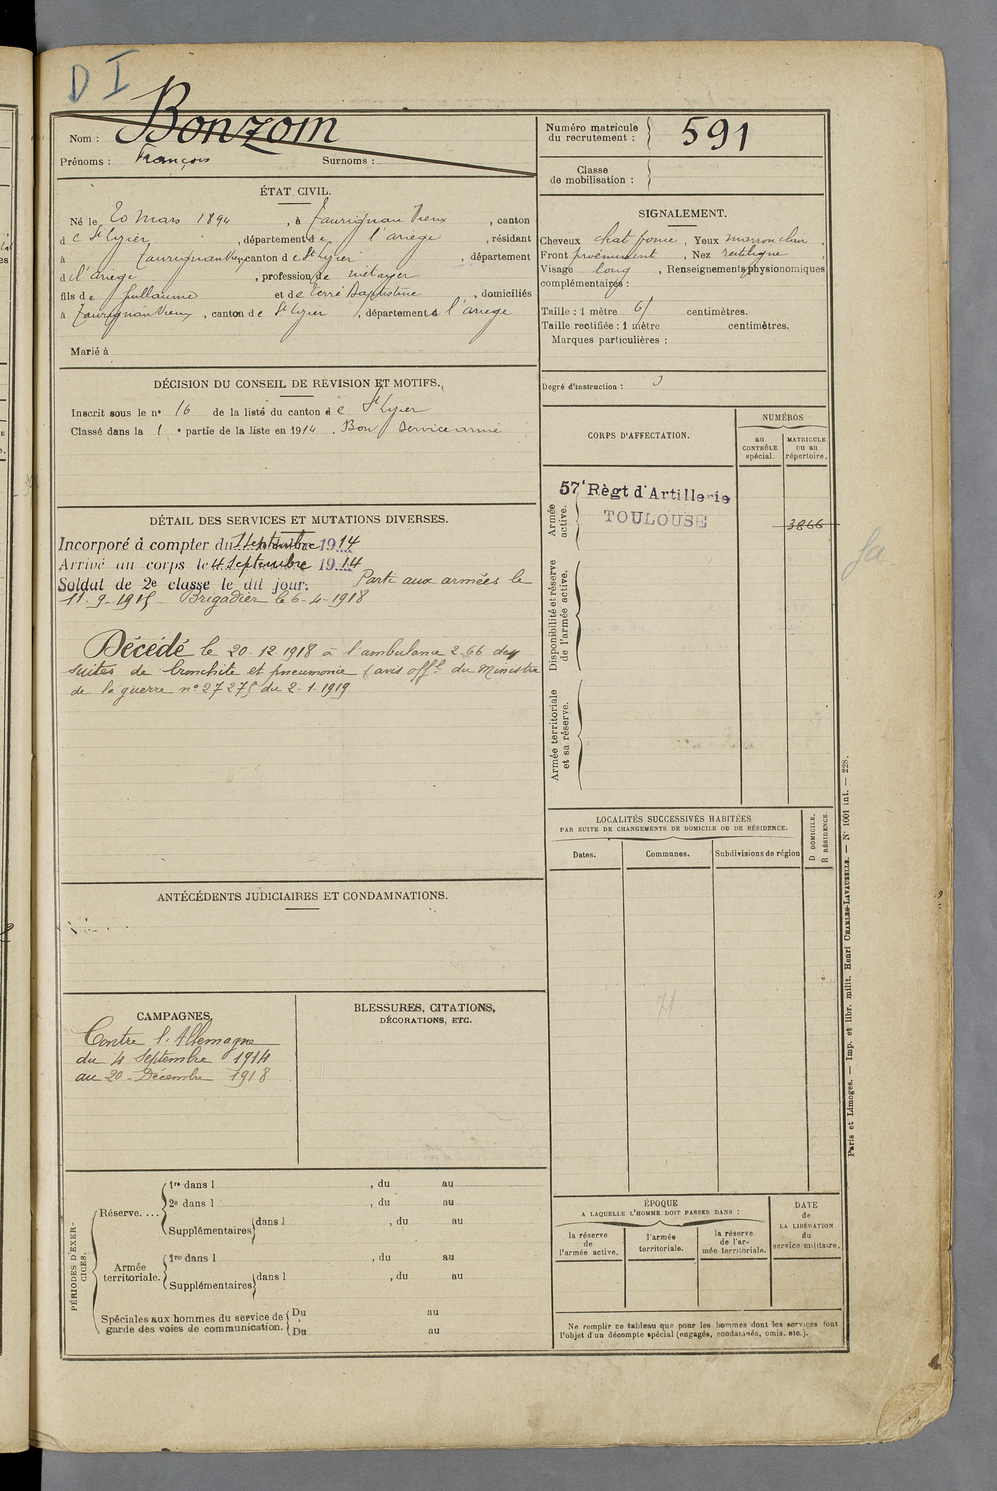 D I
Nom : Bonzom
Prénoms : François Surnoms :
Numéro matricule
du recrutement : 591
Classe
de mobilisation :
ÉTAT CIVIL.
Né le 20 mars 1894, à Taurignan Vieux, canton
de St Lizier, département de l'ariege, résidant
à Taurignan Vieux, canton de St Lizier, département
d l'ariege, profession de métayer
fils de Guillaume et de Terré Baptistine, domiciliés
à Taurignan Vieux, canton de St Lizier, département d l'ariege
Marié à
SIGNALEMENT.
Cheveux chat foncé, Yeux marron clair,
Front proéminent, Nez rectiligne,
Visage long, Renseignements physionomiques
complémentaires :
Taille : 1 mètre 61 centimètres.
Taille rectifiée : 1 mètre centimètres.
Marques particulières :
Degré d'instruction : 3
DÉCISION DU CONSEIL DE REVISION ET MOTIFS.
Inscrit sous le n° 16 de la liste du canton de St Lizier
Classé dans la 1e partie de la liste en 1914. Bon service armé
CORPS D'AFFECTATION.
NUMÉROS
au
CONTRÔLE
spécial.
MATRICULE
ou au
répertoire.
Armée
active.
57e Règt d'Artillerie
TOULOUSE
3866
Disponibilité et réserve
de l'armée active.
Armée territoriale
et sa réserve.
DÉTAIL DES SERVICES ET MUTATIONS DIVERSES.
Incorporé à compter du 1 Septembre 1914
Arrivé au corps le 4 Septembre 1914
Soldat de 2e classe le dit jour. Parti aux armées le
11-9-1915 Brigadier le 6-4-1918
Décédé le 20-12 1918 à l'ambulance 2-66 des
suites de bronchite et pneumonie (avis offel du Ministre
de la guerre n° 27275 du 2-1-1919
LOCALITÉS SUCCESSIVES HABITÉES
PAR SUITE DE CHANGEMENTS DE DOMICILE OU DE RÉSIDENCE.
Dates.
Communes.
Subdivisions de région
D DOMICILE.
R RÉSIDENCE.
71
ANTÉCÉDENTS JUDICIAIRES ET CONDAMNATIONS.
CAMPAGNES.
Contre l'Allemagne
du 4 Septembre 1914
au 20 Décembre 1918
BLESSURES, CITATIONS,
DÉCORATIONS, ETC.
PÉRIODES D'EXER-
CICES.
Réserve....
1re dans l , du au
2e dans l , du au
Supplémentaires dans l , du au
Armée
territoriale.
1re dans l , du au
Supplémentaires dans l , du au
Spéciales aux hommes du service de
garde des voies de communication.
Du au
Du au
ÉPOQUE
A LAQUELLE L'HOMME DOIT PASSER DANS :
la réserve
de
l'armée active.
l'armée
territoriale.
la réserve
de l'ar-
mée territoriale.
DATE
de
LA LIBÉRATION
du
service militaire.
Ne remplir ce tableau que pour les hommes dont les services font
l'objet d'un décompte spécial (engagés, condamnés, omis, etc.).
Paris et Limoges. — Imp. et libr. milit. Henri CHARLES-LAVAUZELLE. — N° 1001 int. — 228.